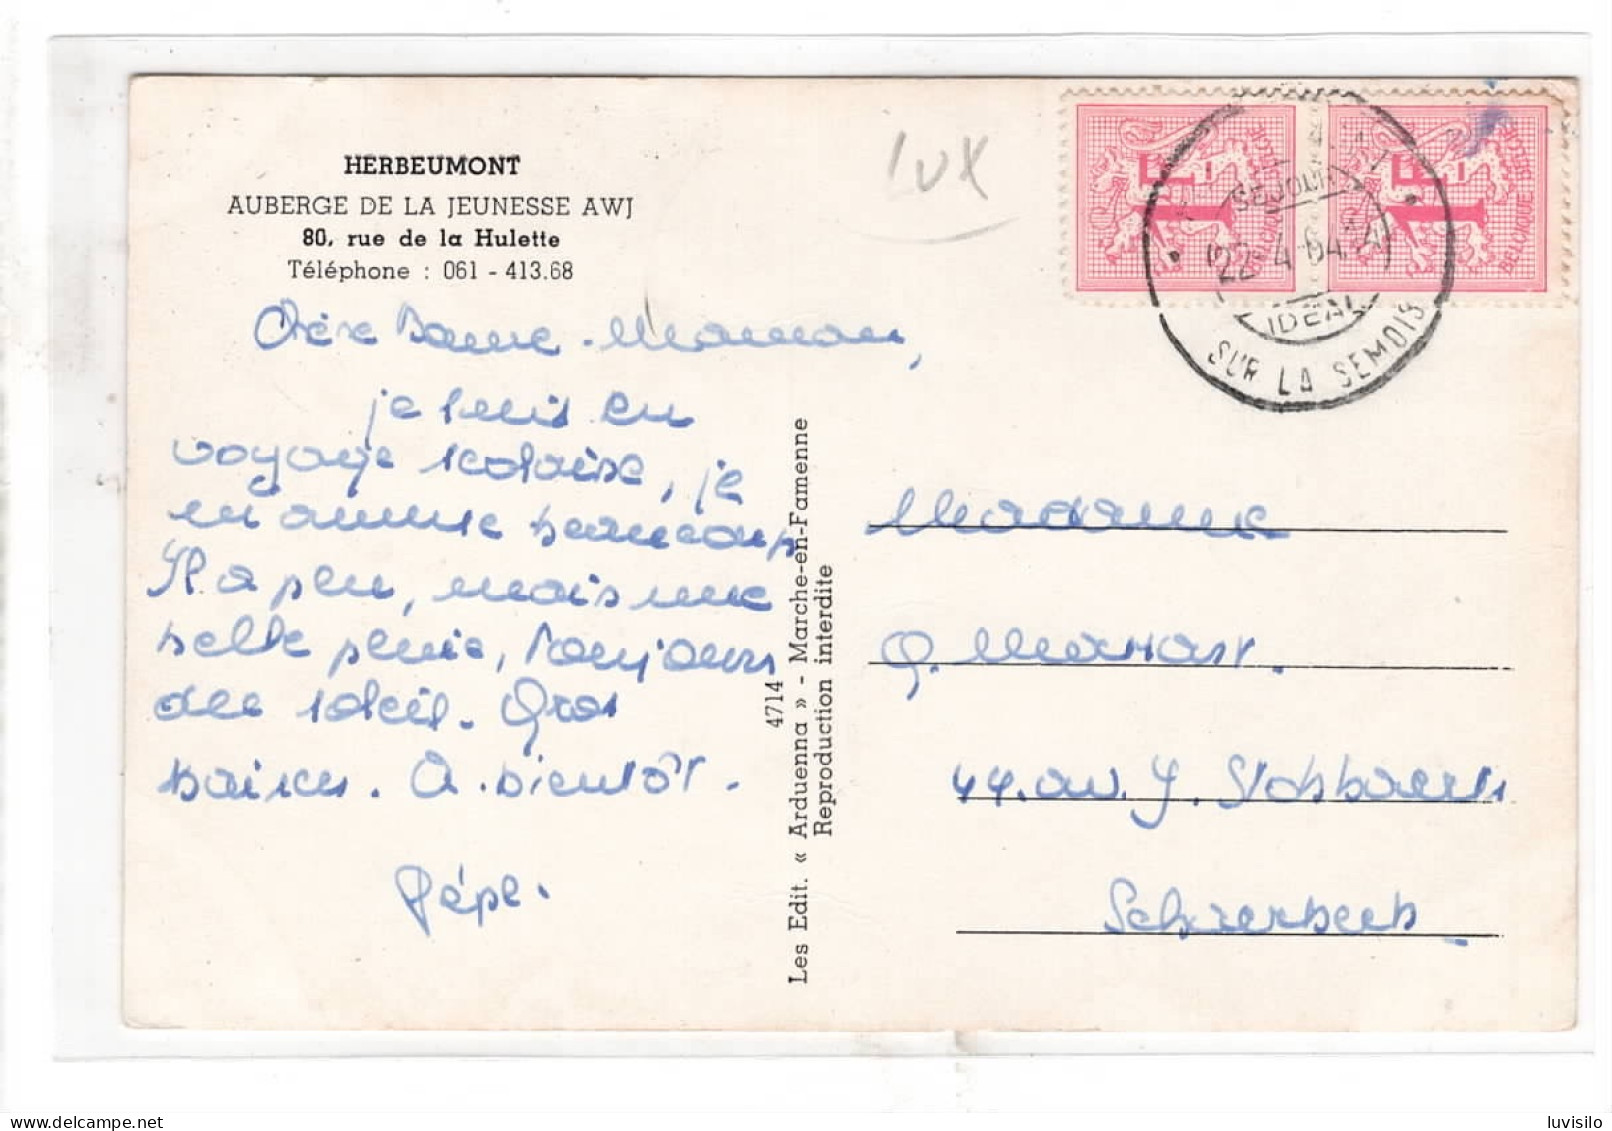 HERBEUMONT
AUBERGE DE LA JEUNESSE AWJ
80, rue de la Hulette
Téléphone : 061 - 413.68
LUX
1F
BELGIQUE BELGIE
1F
BELGIQUE BELGIE
SEJOUR
22-4-64
IDEAL
SUR LA SEMOIS
Chère Bonne-Maman,
je suis en
voyage scolaire, je
m'amuse beaucoup
Il a plu, mais une
belle pluie, toujours
du soleil. Gros
baisers. A bientôt.
Pépé.
4714
Les Edit. « Arduenna » - Marche-en-Famenne
Reproduction interdite
Madame
G.
44. av. J. Stobbaerts
Schaerbeek
delcampe.net
luvisilo